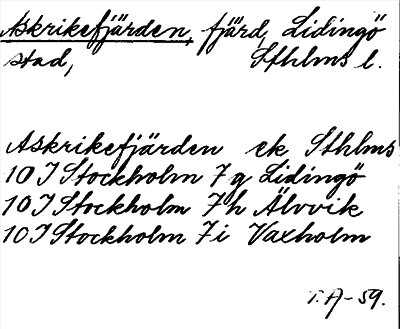 Askrikefjärden, fjärd, Lidingö
stad, Sthlms l.
Askrikefjärden ek Sthlms
10 I Stockholm 7 g Lidingö
10 I Stockholm 7 h Älvvik
10 I Stockholm 7 i Vaxholm
A-59.